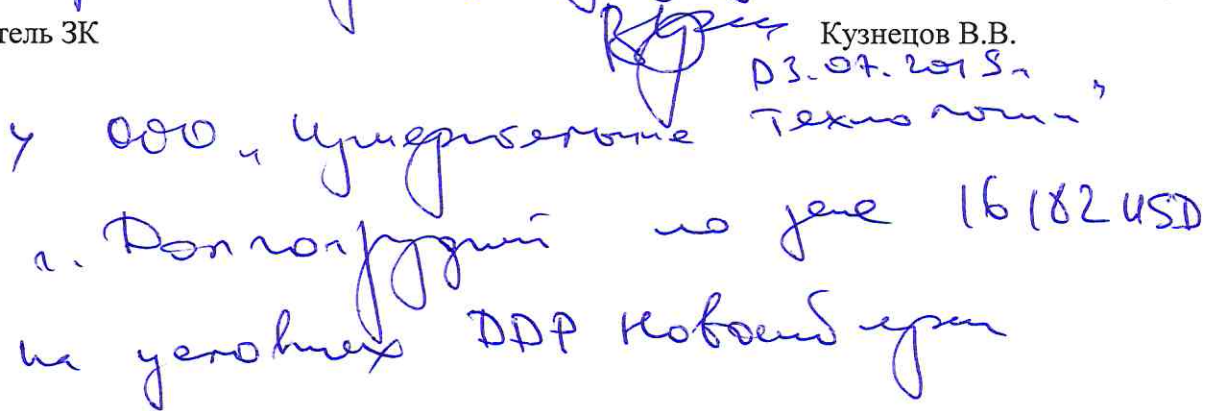 тель ЗК Кузнецов В.В.
03.07.2019г
у ООО „Измерительные Технологии"
г. Долгопрудный по цене 16182 USD
на условиях DDP Новосибирск